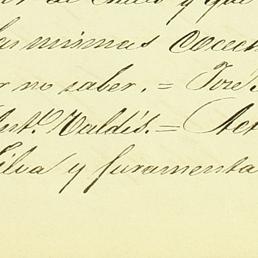 y que
las mismas
r no saber. = José
Ant.º Valdés. = Act
Silva y juramenta